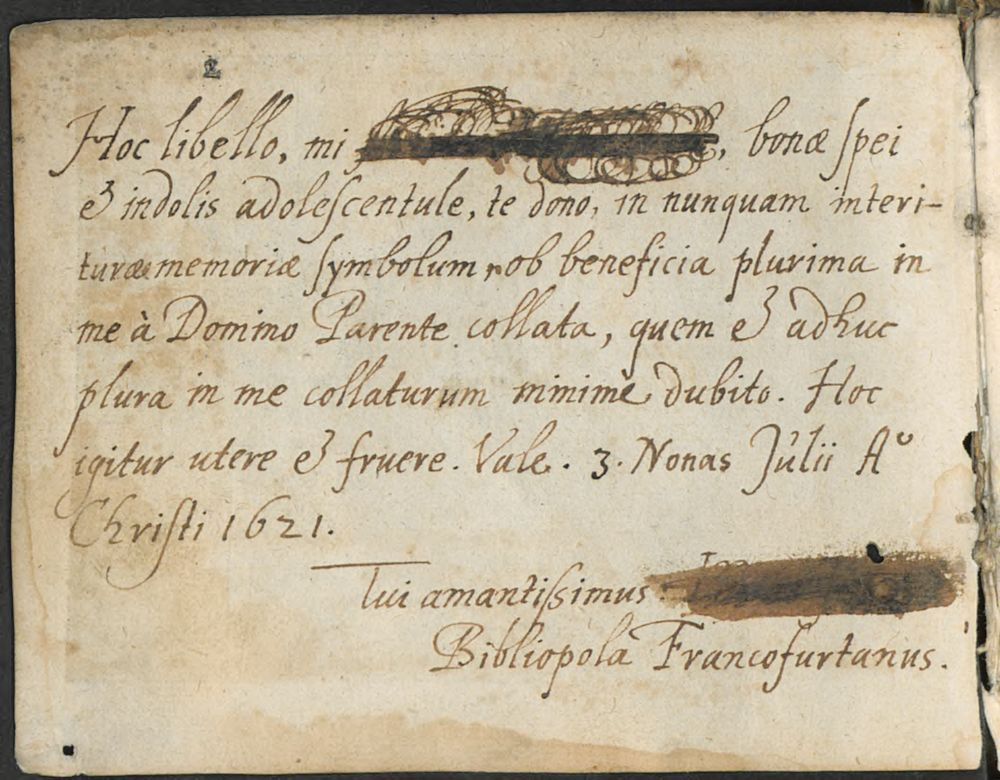 2
Hoc libello, mi , bonæ ſpei
& indolis adoleſcentule, te dono, in nunquam interi-
turæ memoriæ ſymbolum, ob beneficia plurima in
me à Domino Parente collata, quem & adhuc
plura in me collaturum minimè dubito. Hoc
igitur utere & fruere. Vale. 3. Nonas Julii Aº
Chriſti 1621.
Tui amantiſsimus
Bibliopola Francofurtanus.